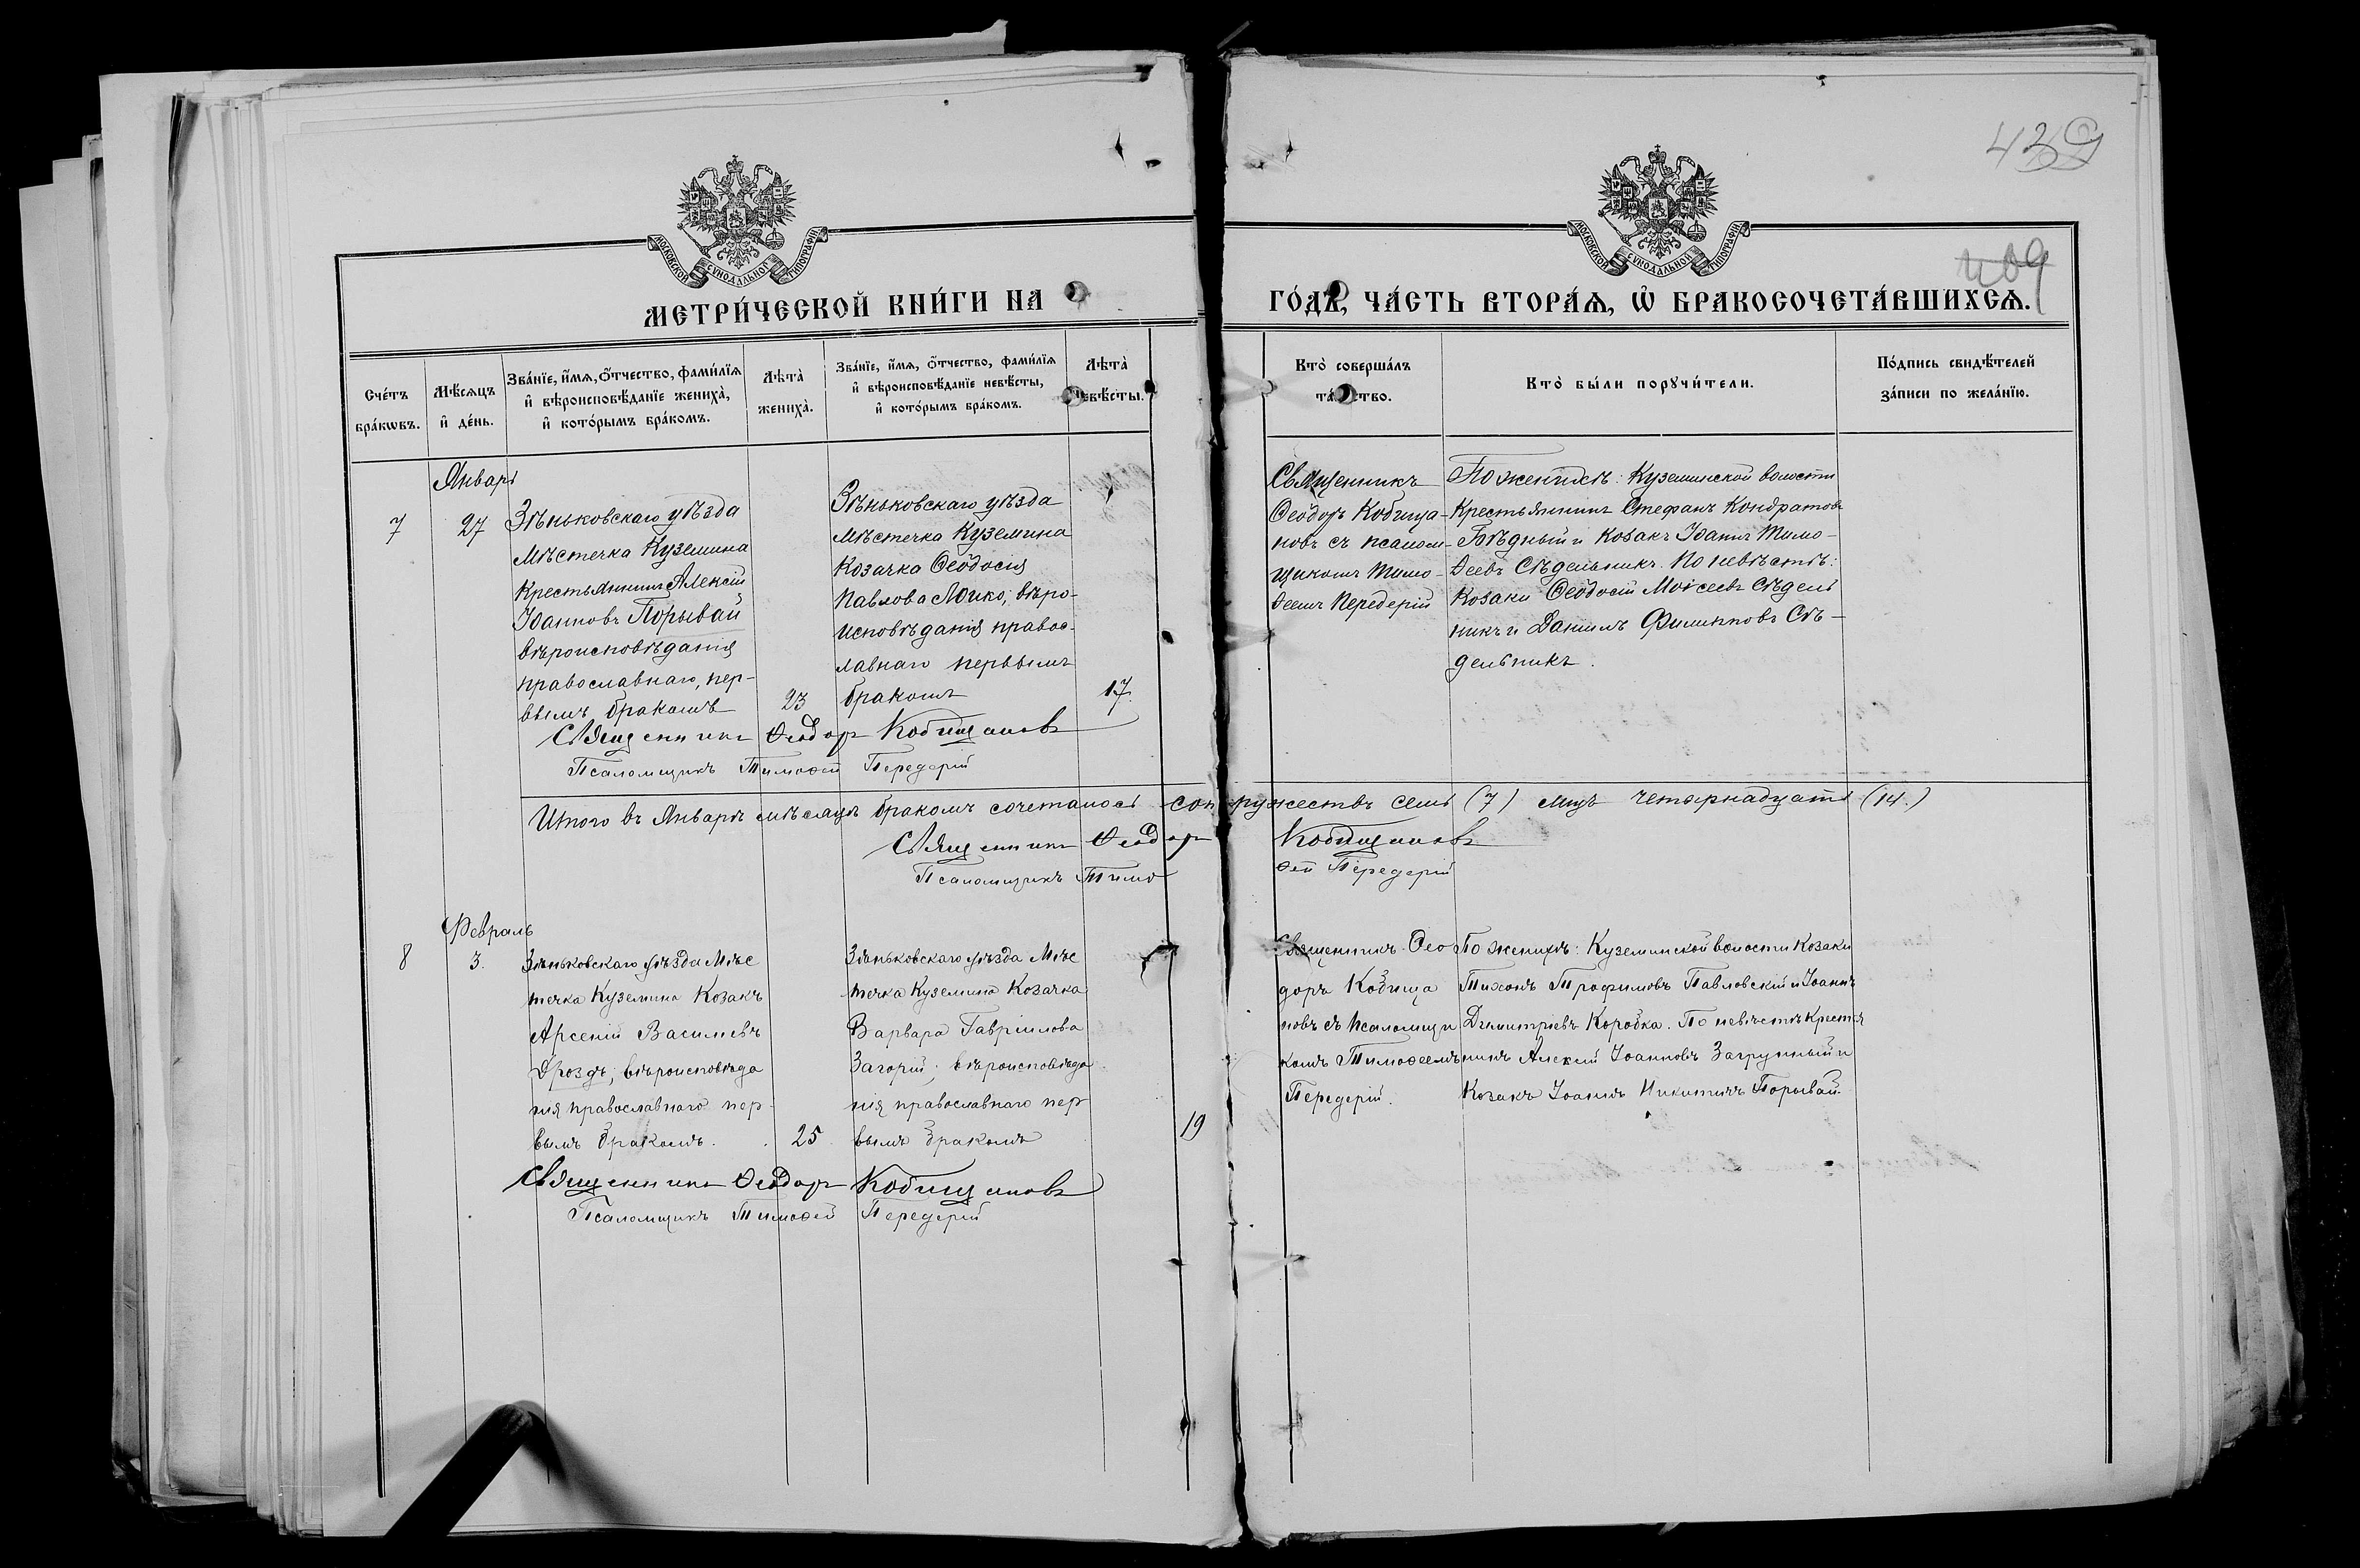 439
409
МОСКОВСКОЙ СѴНОДАЛЬНОЙ ТИПОГРАФІИ
МОСКОВСКОЙ СѴНОДАЛЬНОЙ ТИПОГРАФІИ
МЕТРИ́ЧЕСКОЙ КНИ́ГИ НА
ГО́ДЪ, ЧА́СТЬ ВТОРА́Ѧ, Ѿ БРАКОСОЧЕТА́ВШИХСѦ.
Сче́тъ
бра́кѡвъ.
Мѣ́сѧцъ
и҆ де́нь.
Зва́нїе, и҆́мѧ, ѻ҆́тчество, фами́лїѧ
и҆ вѣроисповѣ́данїе жениха̀,
и҆ кото́рымъ бра́комъ.
Лѣ́та̀
жениха̀.
Зва́нїе, и҆́мѧ, ѻ҆́тчество, фами́лїѧ
и҆ вѣроисповѣ́данїе невѣ́сты,
и҆ кото́рымъ бра́комъ.
Лѣ́та̀
невѣ́сты.
Кто̀ соверша́лъ
та́ ство.
Кто̀ бы́ли порꙋчи́тели.
По́дпись свидѣ́телей
за́писи по жела́нїю.
Январь
7
27
Зѣньковскаго уѣзда
мѣстечка Куземина
Крестьянинъ Алексій
Іоанновъ Порывай
вѣроисповѣданія
православнаго, пер-
вымъ бракомъ
23
Зѣньковскаго уѣзда
мѣстечка Куземина
Козачка Ѳеодосія
Павлова Мочко, вѣро-
исповѣданія правос-
лавнаго первымъ
бракомъ
17.
Священникъ
Ѳеодоръ Кобища-
новъ съ псалом-
щикомъ Тимо-
ѳеемъ Передерій
По женихѣ: Куземинской волости
Крестьянинъ Стефанъ Кондратовъ
Бѣдный и Козакъ Іоаннъ Тимо-
ѳеевъ Сѣдельникъ. По невѣстѣ:
Козаки Ѳеодосій Моісеевъ Сѣдель
никъ и Даніилъ Филипповъ Сѣ-
дельникъ.
Священникъ Ѳеодоръ Кобищановъ
Псаломщикъ Тимоѳей Передерій
Итого въ Январѣ мѣсяцѣ бракомъ сочеталось супружествъ семь (7) лицъ четырнадцать (14.)
Священникъ Ѳеодоръ Кобищановъ
Псаломщикъ Тимоѳей Передерій
Февраль
8
3.
Зѣньковскаго уѣзда Мѣс
течка Куземина Козакъ
Арсеній Васильевъ
Дроздъ, вѣроисповѣда
нія православнаго пер-
вымъ бракомъ.
25
Зѣньковскаго уѣзда Мѣс
течка Куземина Козачка
Варвара Гавріилова
Загорій, вѣроисповѣда
нія православнаго пер
вымъ бракомъ
19
Священникъ Ѳео
доръ Кобища
новъ съ псаломщи
комъ Тимоѳеемъ
Передерій.
По женихѣ: Куземинской волости Козаки
Тихонъ Трофимовъ Павловскій и Іоаннъ
Димитріевъ Коробка. По невѣстѣ Крестья
нинъ Алексій Іоанновъ Загрунный и
Козакъ Іоаннъ Никитинъ Порывай.
Священникъ Ѳеодоръ Кобищановъ
Псаломщикъ Тимоѳей Передерій